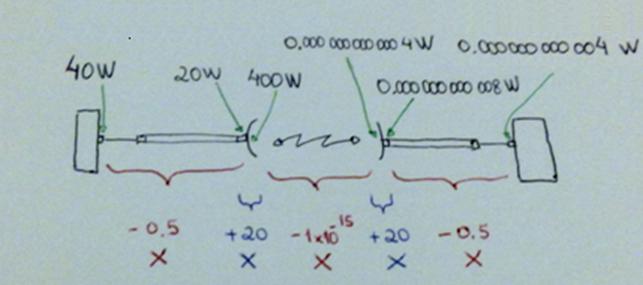 0.000 000 000 000 4W 0.000 000 000 004 W
40W 20W 400W 0.000 000 000 008 W
-0.5 +20 -1x10⁻¹⁵ +20 -0.5
X X X X X